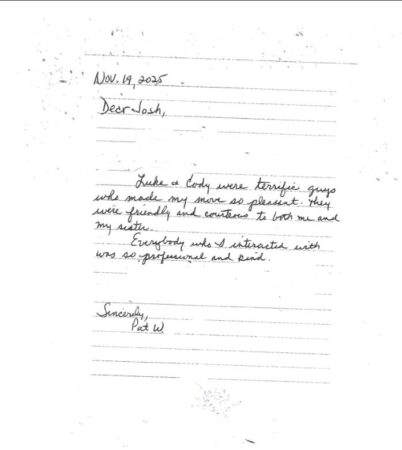 Nov. 19, 2025
Dear Josh,
Luke & Cody were terrific guys
who made my move so pleasant. They
were friendly and courteous to both me and
my sister.
Everybody who I interacted with
was so professional and kind.
Sincerely,
Pat W